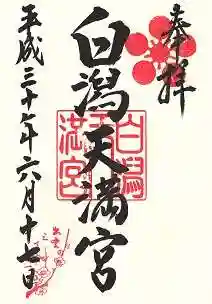 奉拝
白潟天満宮
平成三十年六月十七日
白潟
天
満宮